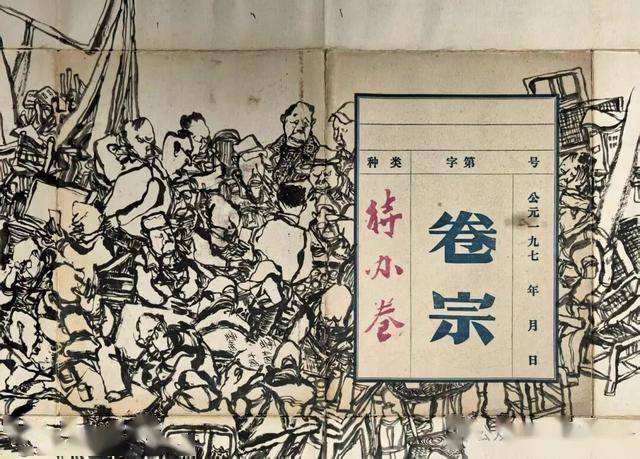 种类 字第 号
待办卷
卷宗
公元一九七 年 月 日